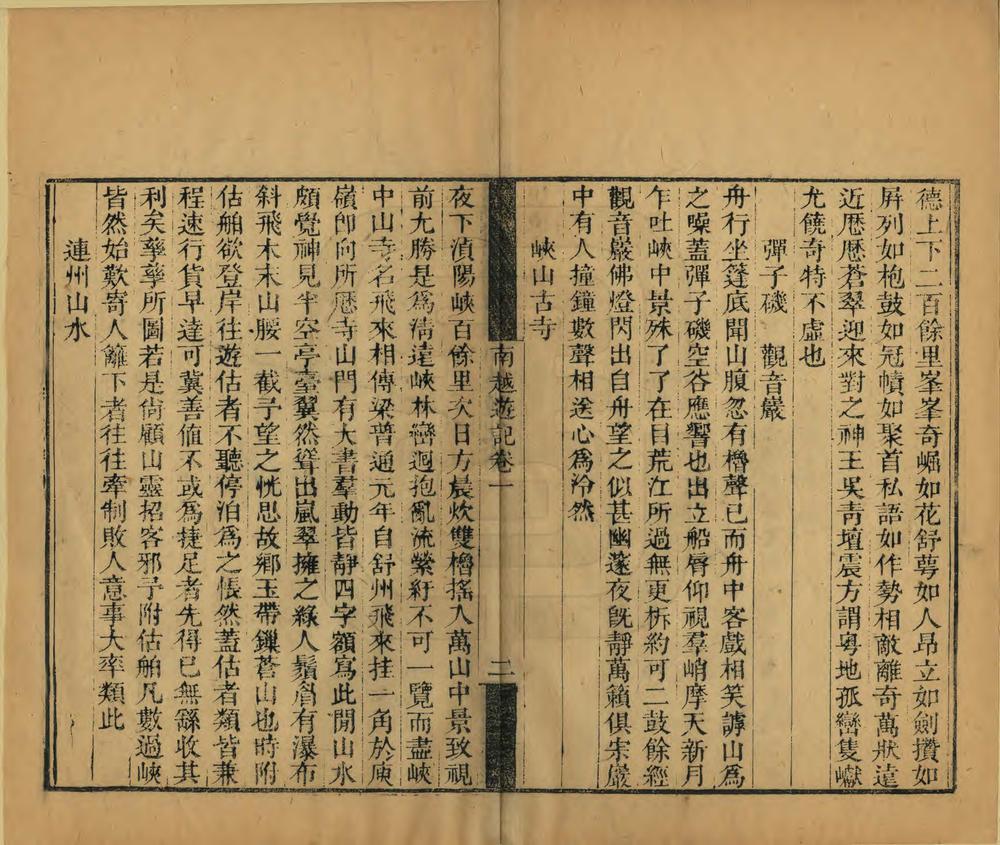 德上下二百餘里峯峯奇崛如花舒萼如人昂立如劍攢如
屏列如枹鼓如冠幘如聚首私語如作勢相敵離奇萬狀遠
近歴歴蒼翠迎來對之神王吴青壇震方謂粤地孤巒隻巘
尤饒奇特不虛也
彈子磯 觀音巖
舟行坐篷底聞山腹忽有櫓聲已而舟中客戲相笑謔山爲
之噪蓋彈子磯空谷應響也出立船脣仰視羣峭摩天新月
乍吐峽中景殊了了在目荒江所過無更柝約可二鼓餘經
觀音巖佛燈閃出自舟望之似甚幽邃夜旣靜萬籟俱宋巖
中有人撞鐘數聲相送心爲泠然
峽山古寺
南越遊記卷一
二
夜下湞陽峽百餘里次日方晨炊雙櫓搖入萬山中景致視
前尤勝是爲清遠峽林巒迴抱亂流縈紆不可一覽而盡峽
中山寺名飛來相傳梁普通元年自舒州飛來挂一角於庾
嶺卽向所歴寺山門有大書羣動皆靜四字額寫此閒山水
頗覺神見半空亭臺翼然聳出嵐翠擁之綠人鬚眉有瀑布
斜飛木末山腰一截予望之恍思故鄉玉帶鏁蒼山也時附
估舶欲登岸往遊估者不聽停泊爲之悵然蓋估者類皆兼
程速行貨早達可冀善值不或爲捷足者先得已無繇收其
利矣孳孳所圖若是尙顧山靈招客邪予附估舶凡數過峽
皆然始歎寄人籬下者往往牽制敗人意事大率類此
連州山水